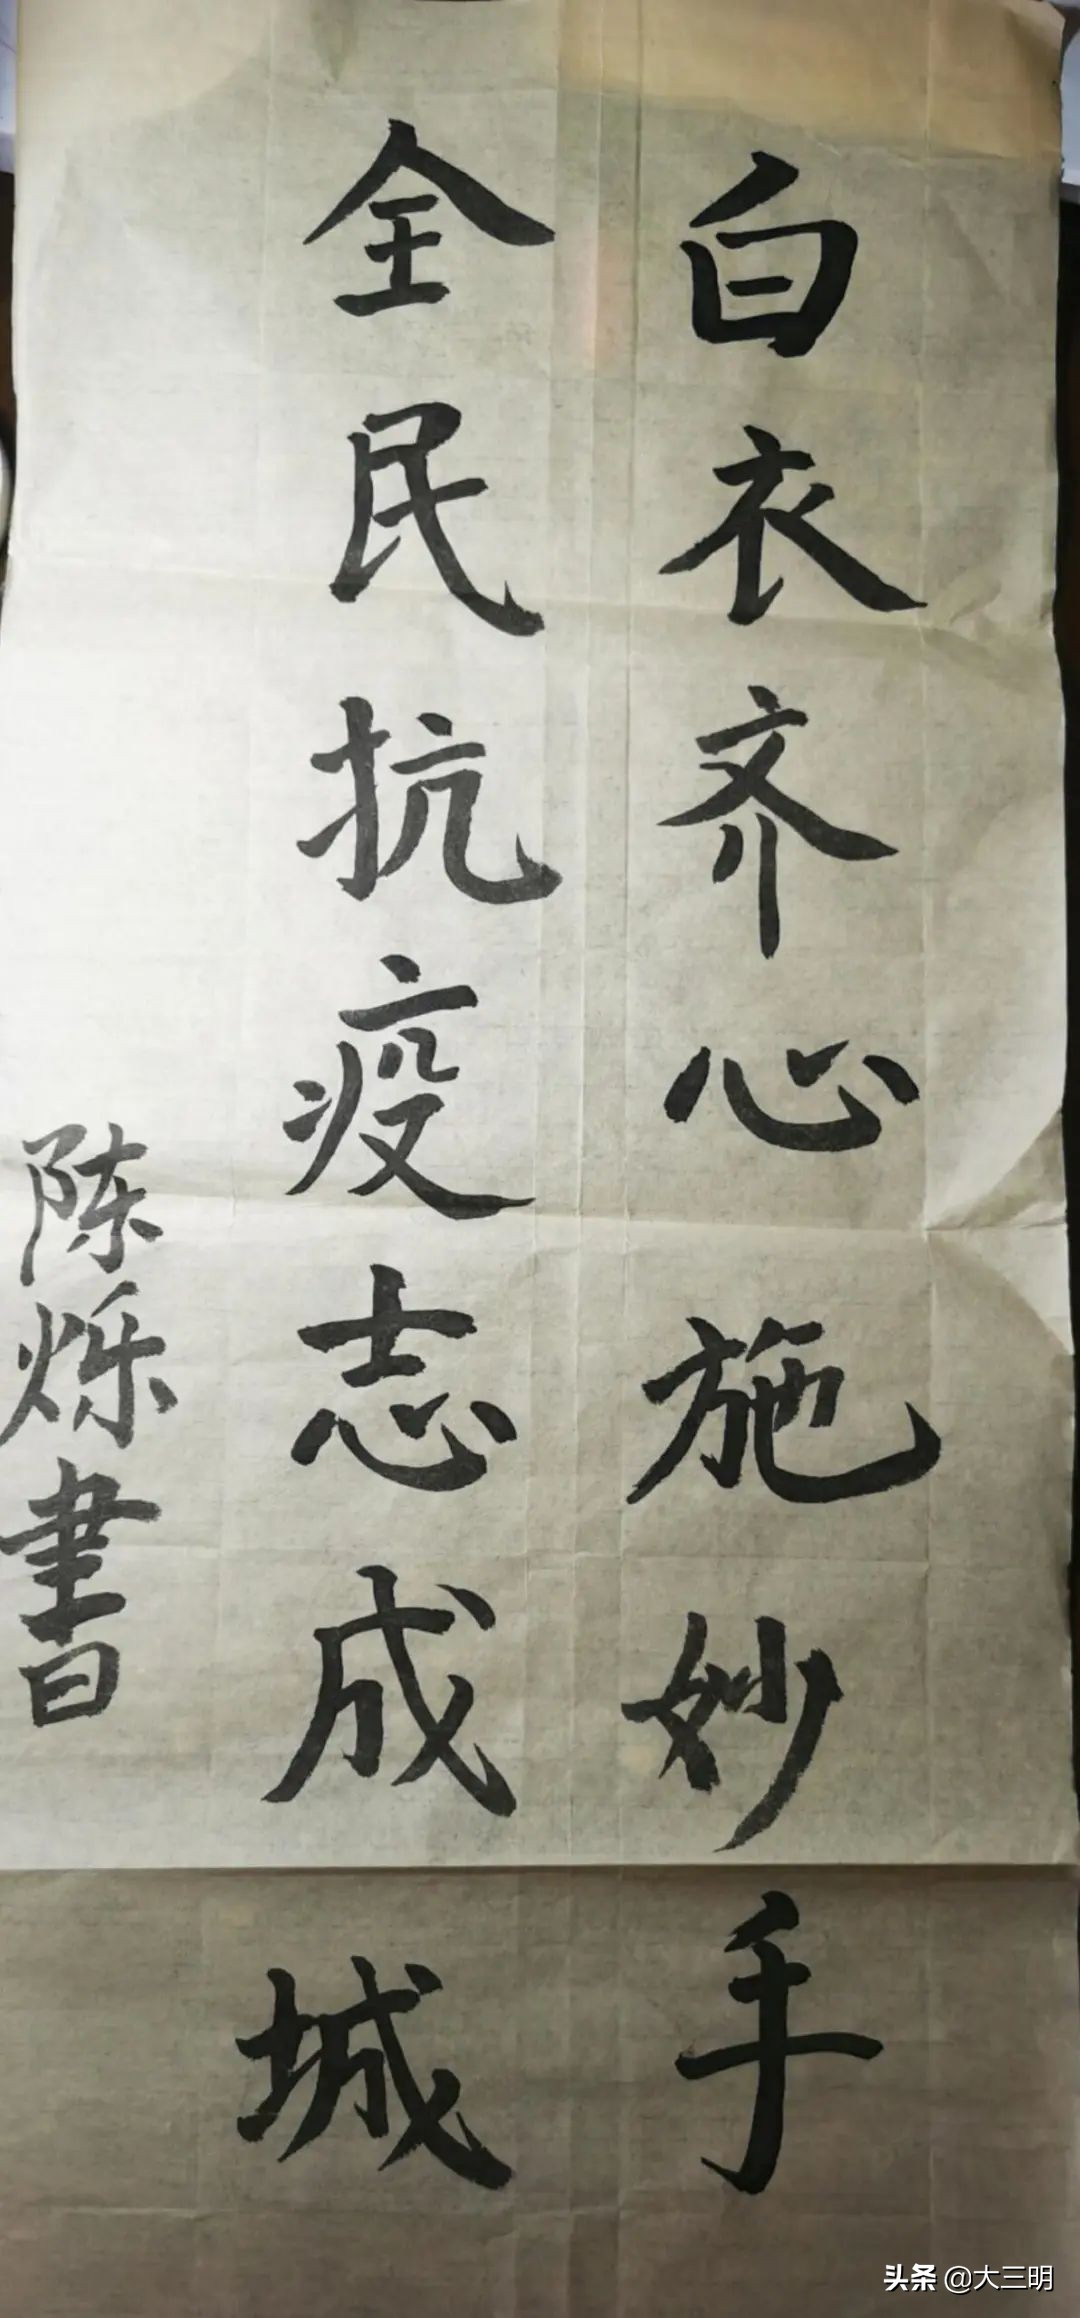 白衣齐心施妙手
全民抗疫志成城
陈烁書
头条 @大三明